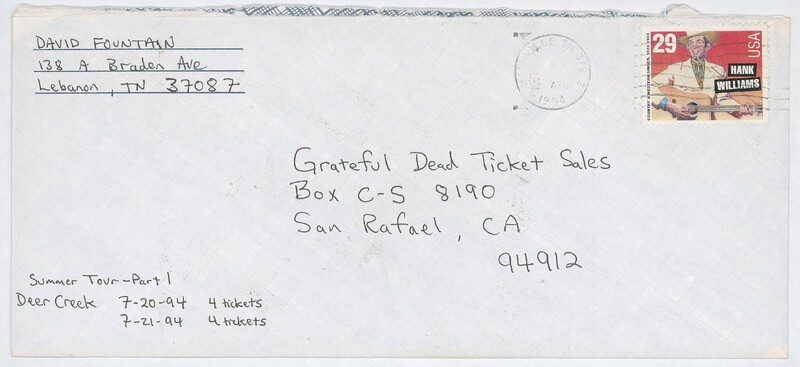 DAVID FOUNTAIN
138 A Braden Ave
Lebanon, TN 37087
1994
29
USA
HANK
WILLIAMS
Grateful Dead Ticket Sales
Box C-S 8190
San Rafael, CA
94912
Summer Tour - Part 1
Deer Creek 7-20-94 4 tickets
7-21-94 4 tickets